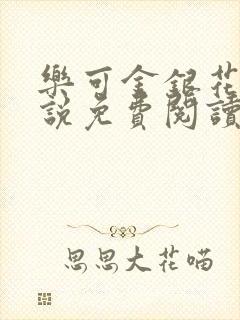 樂可金銀花
說免費閱讀
思思大花喵